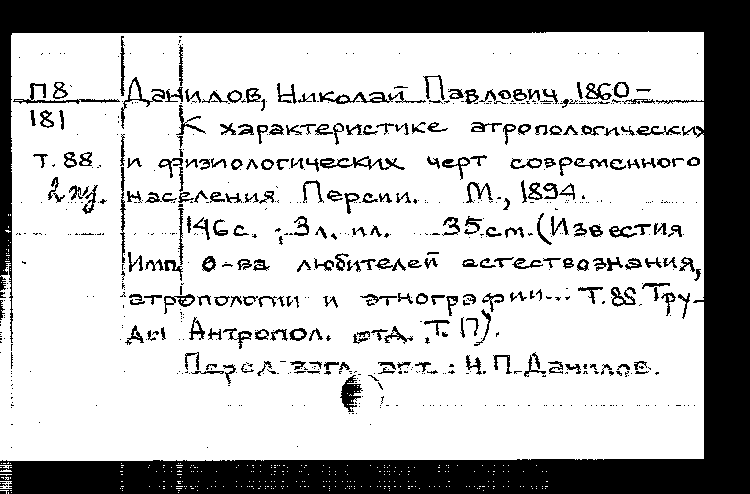 П8 Данилов, Николай Павлович, 1860-
181 К характеристике атропологических
т. 88. и физиологических черт современного
2 экз. населения Персии. М., 1894.
146 с. ; 3 л. ил. 35 см. (Известия
Имп. о-ва любителей естествознания,
атропологии и этнографии... Т. 88. Тру-
ды Антропол. отд. Т. 17).
Перед загл. авт. : Н. П. Данилов.